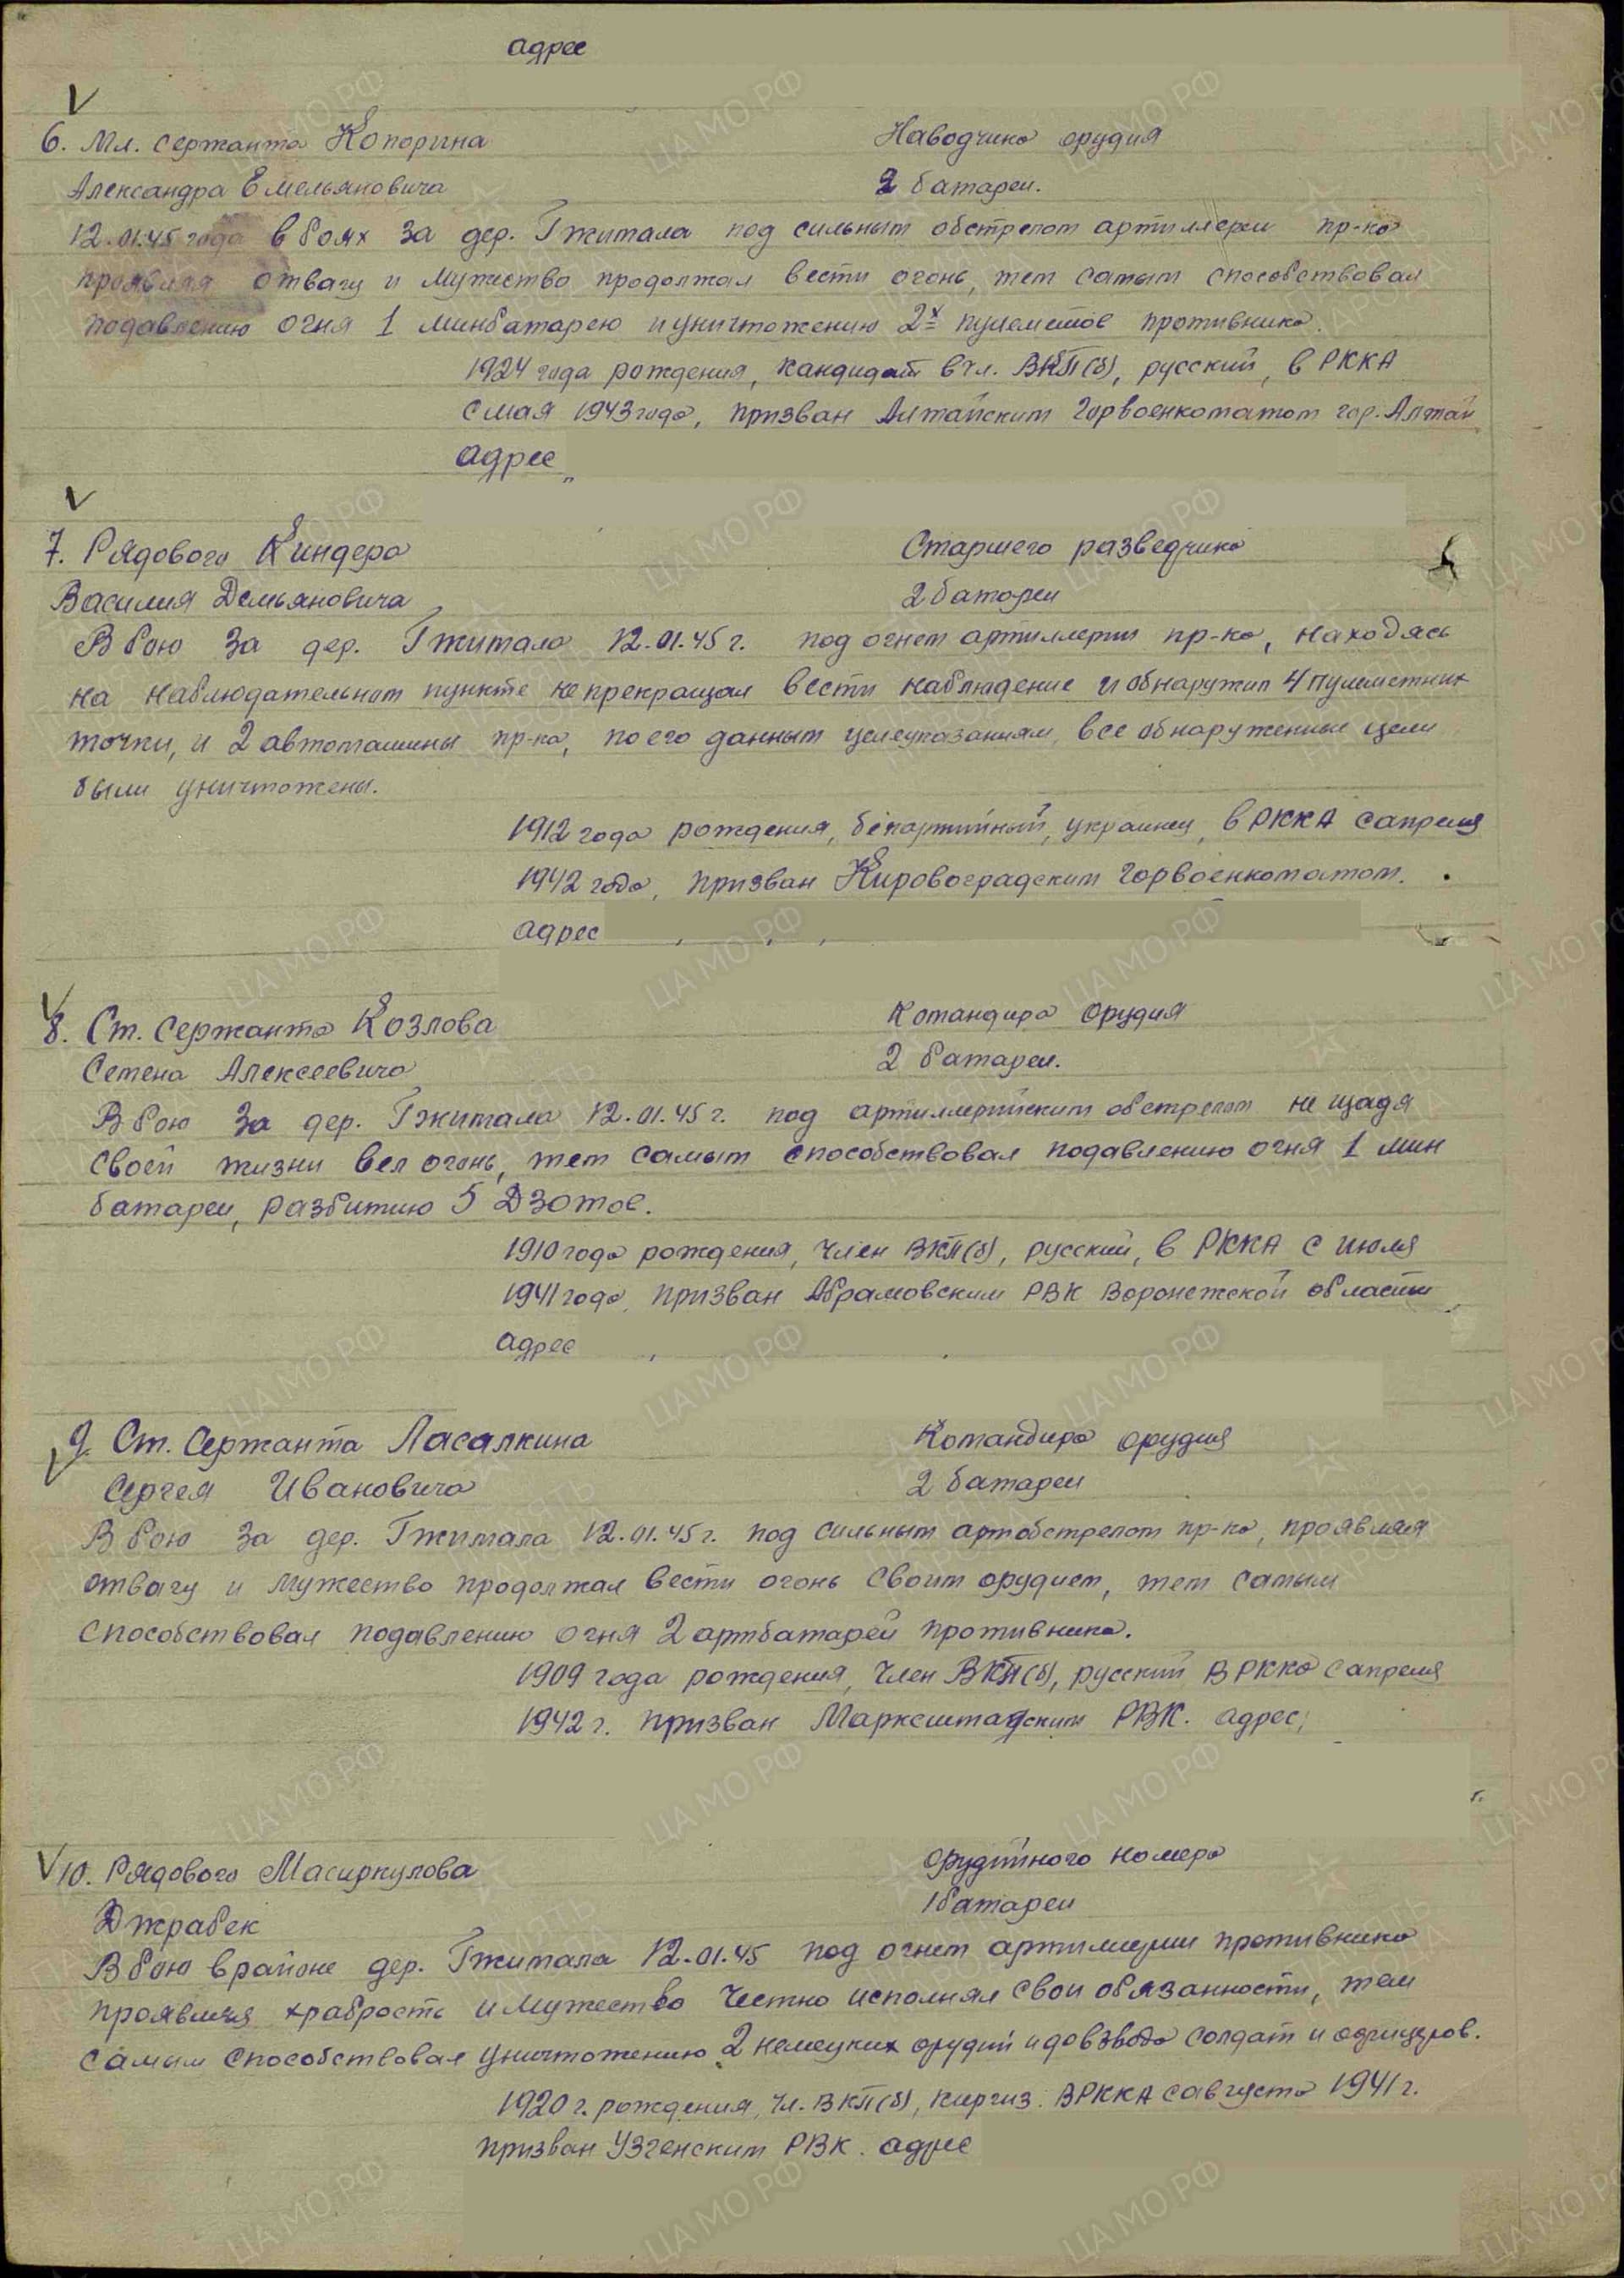 адрес
6. Мл. сержанта Копорина Наводчика орудия
Александра Емельяновича 2 батареи.
12.01.45 года в боях за дер. Гжитала под сильным обстрелом артиллерии пр-ка
проявляя отвагу и мужество продолжал вести огонь, тем самым способствовал
подавлению огня 1 минбатарею и уничтожению 2х пулеметов противника.
1924 года рождения, кандидат в чл. ВКП(б), русский, в РККА
с мая 1943 года, призван Алтайским горвоенкоматом гор. Алтай
адрес
7. Рядового Киндера Старшего разведчика
Василия Демьяновича 2 батареи
В бою за дер. Гжитала 12.01.45 г. под огнем артиллерии пр-ка, находясь
на наблюдательном пункте не прекращал вести наблюдение и обнаружил 4 пулеметных
точки, и 2 автомашины пр-ка, по его данным целеуказаниям, все обнаруженные цели
были уничтожены.
1912 года рождения, беспартийный, украинец, в РККА с апреля
1942 года, призван Кировоградским горвоенкоматом.
адрес
8. Ст. сержанта Козлова Командира орудия
Семена Алексеевича 2 батареи.
В бою за дер. Гжитала 12.01.45 г. под артиллерийским обстрелом не щадя
своей жизни вел огонь, тем самым способствовал подавлению огня 1 мин
батареи, разбитию 5 Дзотов.
1910 года рождения, член ВКП(б), русский, в РККА с июля
1941 года, призван Абрамовским РВК Воронежской области
адрес
9. Ст. Сержанта Ласалкина Командира орудия
Сергея Ивановича 2 батареи
В бою за дер. Гжитала 12.01.45 г. под сильным артобстрелом пр-ка, проявляя
отвагу и мужество продолжал вести огонь своим орудием, тем самым
способствовал подавлению огня 2 артбатарей противника.
1909 года рождения, член ВКП(б), русский В РККА с апреля
1942 г. призван Марксштадским РВК. адрес,
10. Рядового Масиркулова Орудийного номера
Джрабек 1 батареи
В бою в районе дер. Гжитала 12.01.45 под огнем артиллерии противника
проявляя храбрость и мужество честно исполнял свои обязанности, тем
самым способствовал уничтожению 2 немецких орудий и до взвода солдат и офицеров.
1920 г. рождения, чл. ВКП(б), киргиз. В РККА с августа 1941 г.
призван Узгенским РВК. адрес
ЦА МО РФ